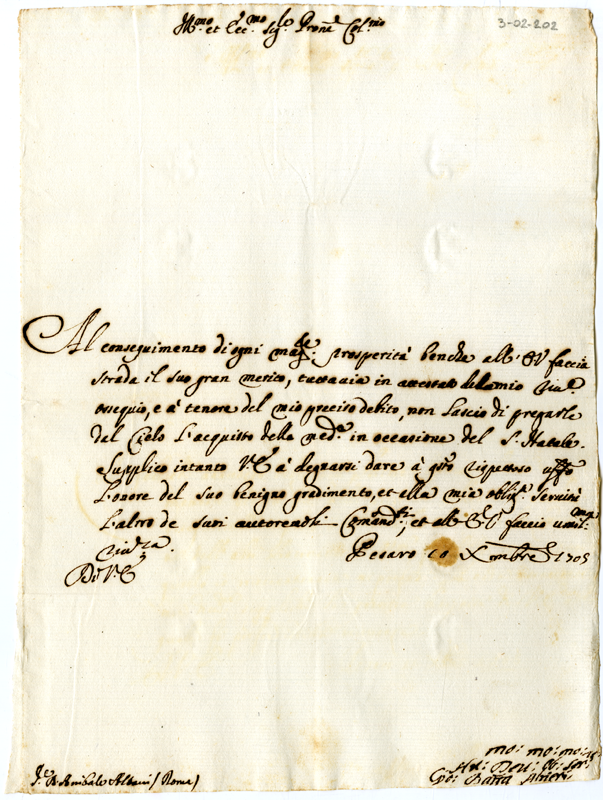 Ill.mo et Ecc.mo Sig.le Prone Col.mo
3-02-202
Al conseguimento di ogni mag.re prosperità benche all' EV faccia
strada il suo gran merito, tuttavia in attestato del mio riv.o
ossequio, e à tenore del mio preciso debito, non lascio di pregarle
dal Cielo l'acquisto della med.a in occasione del S. Natale.
Supplico intanto V.E à degnarsi dare à q.sto rispettoso uff.o
l'onore del suo benigno gradimento, et alla mia oblig.a servitù
l'altro de suoi autorevoli Comand.ti, et all' E.V faccio umil.ma
riv.za.
Di V.E
Pesaro 10 Xmbre 1705
D. Anibale Albani (Roma)
mo: mo: mo:
Hu: Dev: Ob: Ser:
Batta Altieri